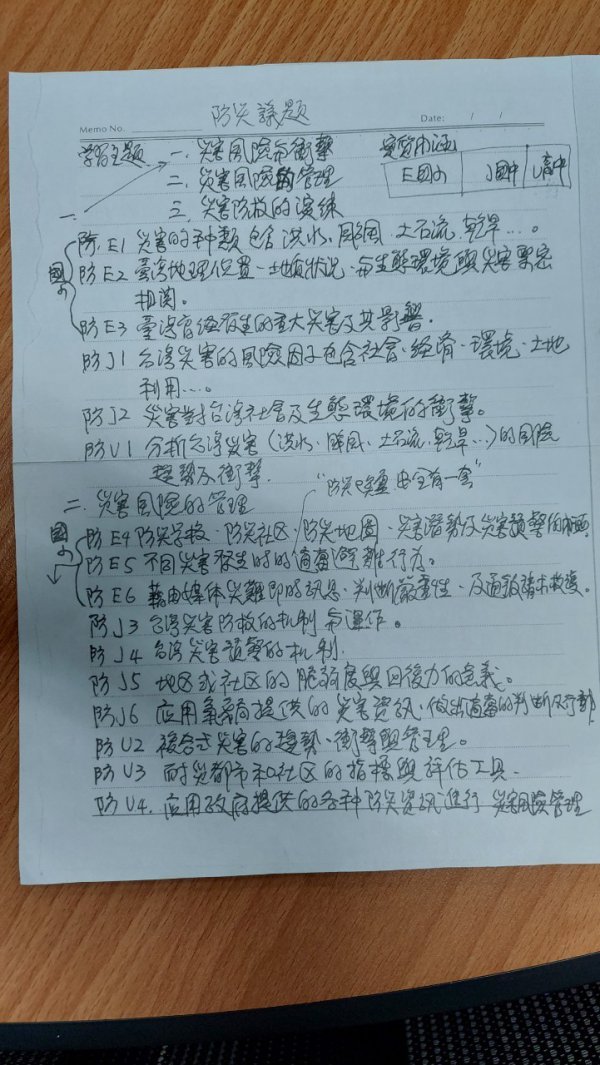 防災議題
Memo No. Date: / /
學習主題 一. 災害風險与衝擊 實質內涵
二. 災害風險的管理 E國小 J國中 U高中
三. 災害防救的演練
一.
國小
防. E1 災害的种類包含洪水、颱風、土石流、乾旱...。
防 E2 臺灣地理位置、地質狀況、与生態環境與災害緊密
相関。
防 E3 臺灣曾經發生的重大災害及其影響.
防 J1 台湾災害的風險因子包含社會、經濟、環境、土地
利用...。
防 J2 災害對台湾社會及生態環境的衝擊。
防 U1 分析台湾災害 (洪水、颱風、土石流、乾旱...) 的風險
趨勢及衝擊.
二. 災害風險的管理 "防災 全有一套"
國小
防 E4 防災学校、防災社区、防災地圖、災害潛勢及災害預警的
防 E5 不同災害發生時的適當避難行為。
防 E6 藉由媒体災難即時訊息、判斷嚴重性、及通報請求救援。
防 J3 台湾災害防救的机制与運作。
防 J4 台湾災害預警的机制.
防 J5 地区或社区的脆弱度與回復力的意義。
防 J6 应用氣象局提供的災害資訊、做出適當的判断及行動
防 U2 複合式災害的趨勢、衝擊與管理。
防 U3 耐災都市和社区的指標與評估工具.
防 U4. 应用政府提供的各种防災資訊進行災害風險管理